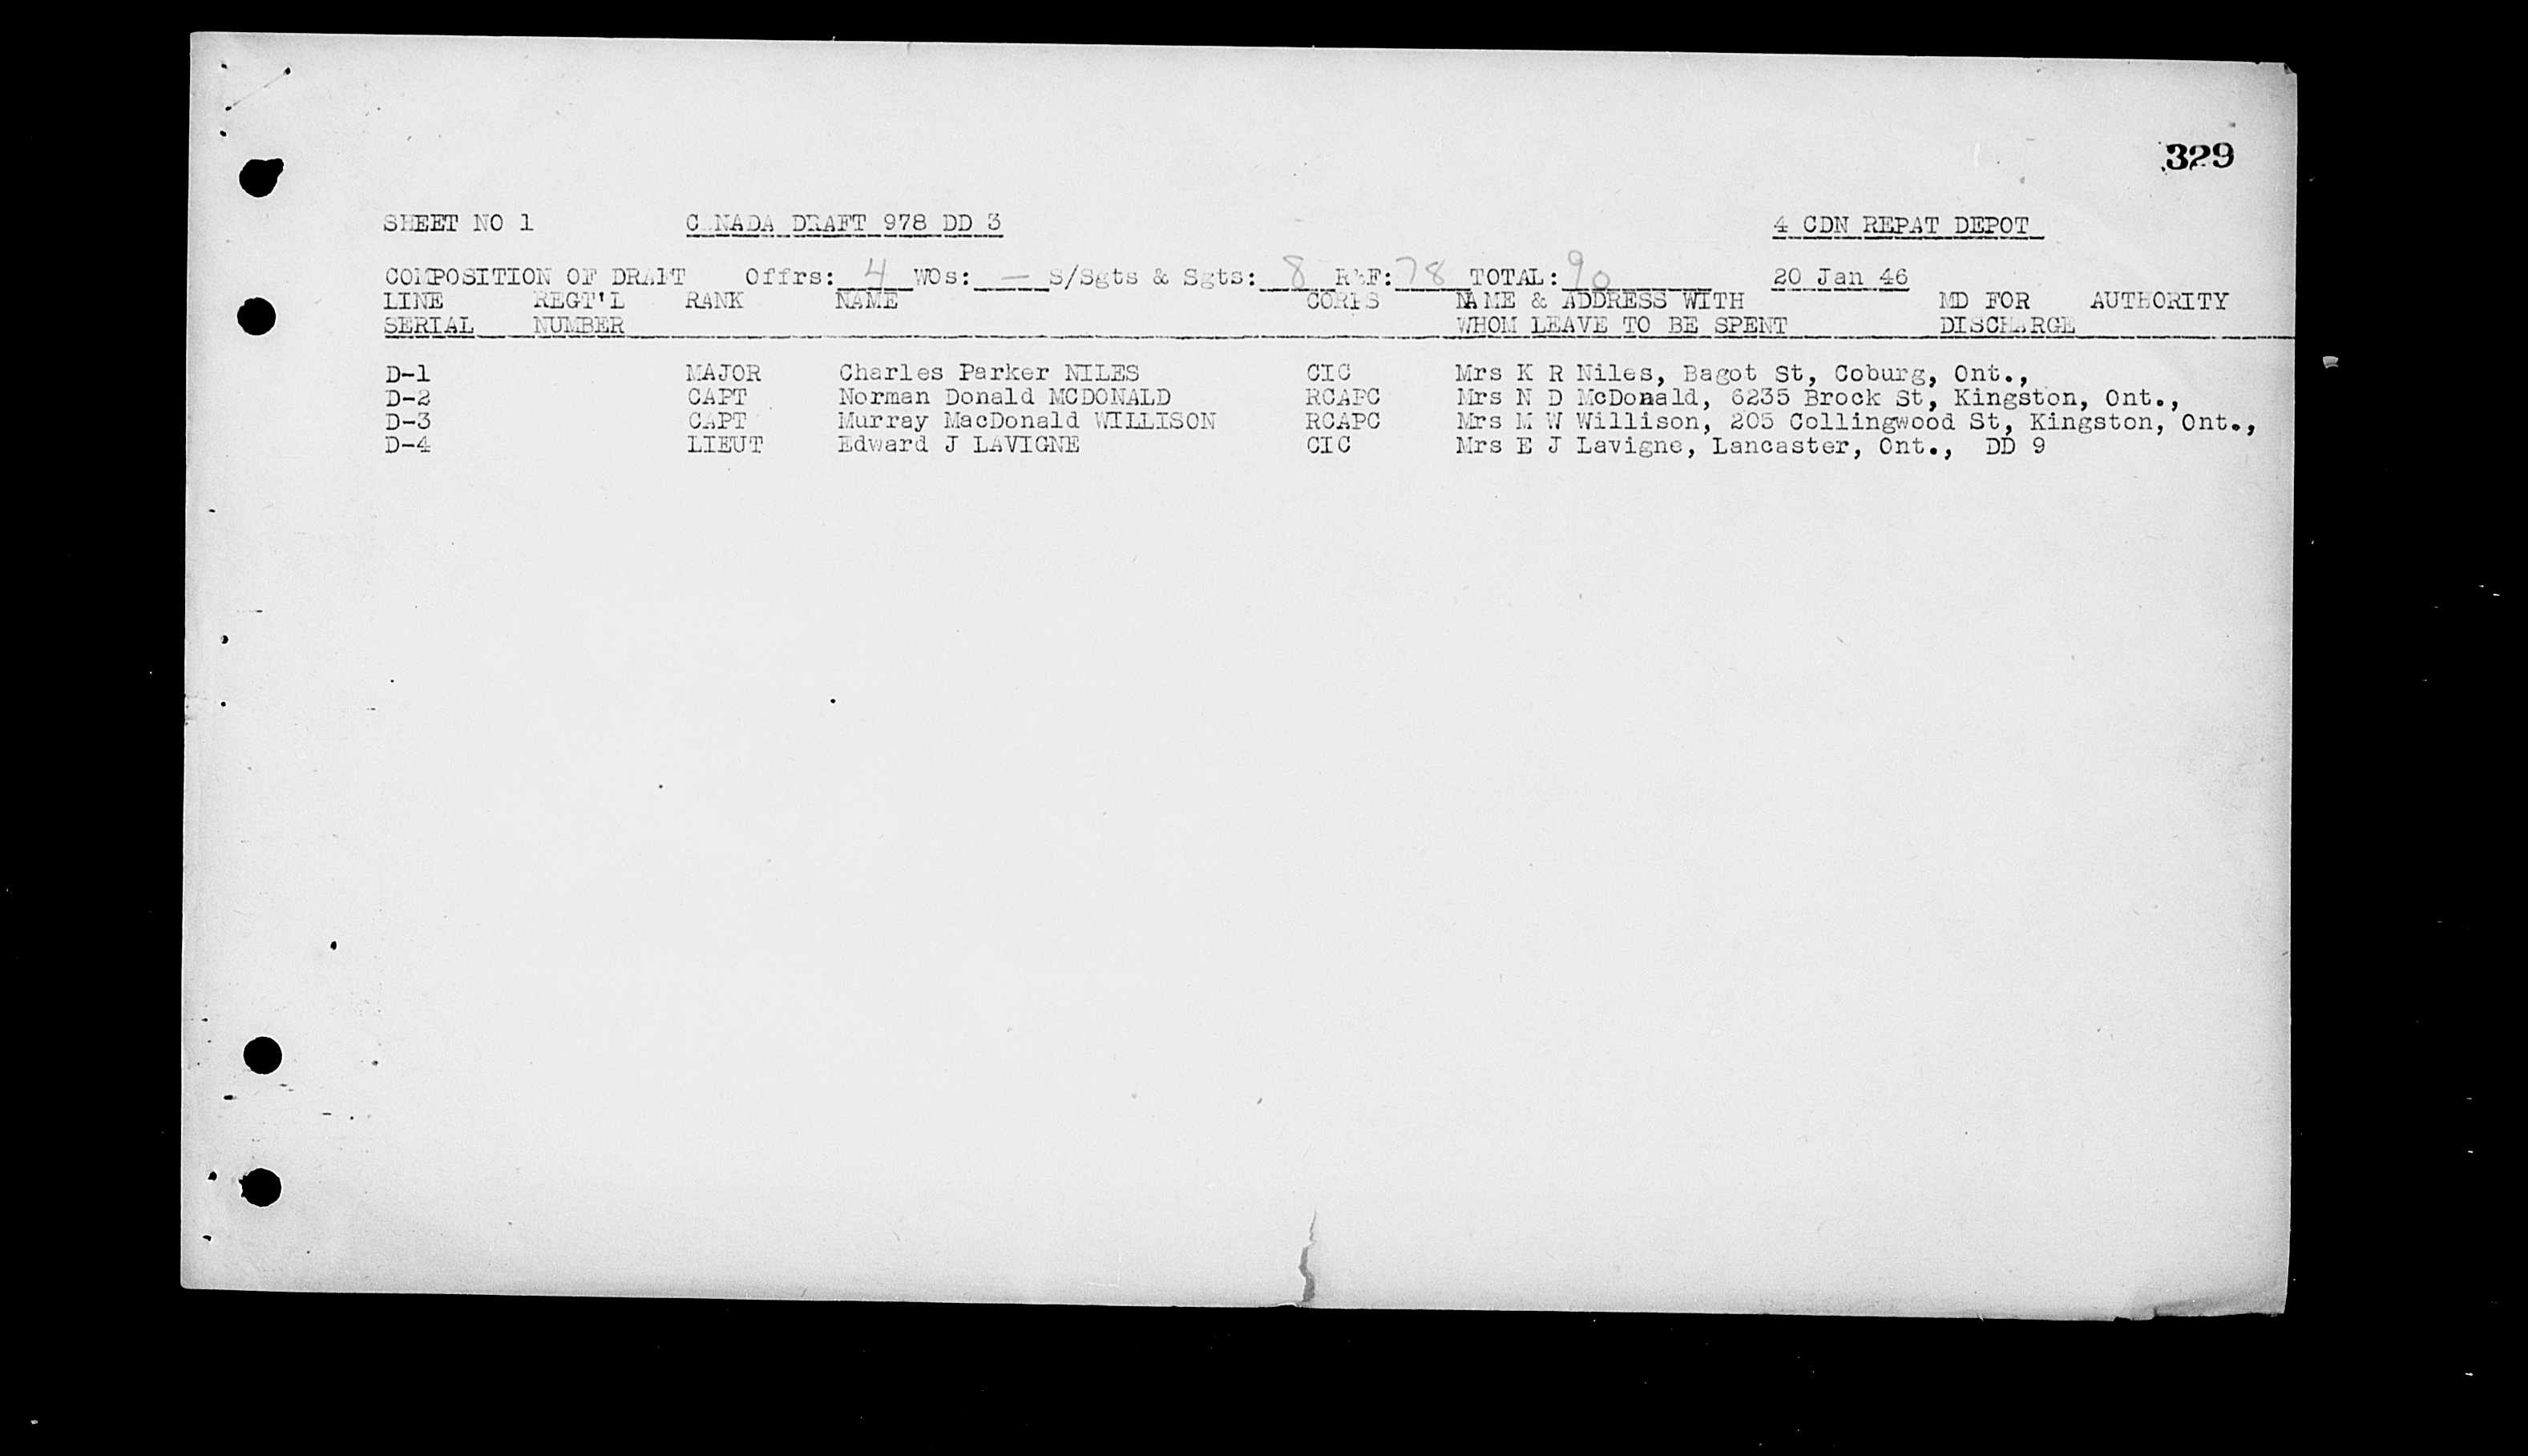 329
SHEET NO 1 CANADA DRAFT 978 DD 3 4 CDN REPAT DEPOT
COMPOSITION OF DRAFT Offrs: 4 WOs: — S/Sgts & Sgts: 8 R&F: 78 TOTAL: 90 20 Jan 46
LINE REGT'L RANK NAME CORPS NAME & ADDRESS WITH MD FOR AUTHORITY
SERIAL NUMBER WHOM LEAVE TO BE SPENT DISCHARGE
D-1 MAJOR Charles Parker NILES CIC Mrs K R Niles, Bagot St, Coburg, Ont.,
D-2 CAPT Norman Donald MCDONALD RCAPC Mrs N D McDonald, 6235 Brock St, Kingston, Ont.,
D-3 CAPT Murray MacDonald WILLISON RCAPC Mrs M W Willison, 205 Collingwood St, Kingston, Ont.,
D-4 LIEUT Edward J LAVIGNE CIC Mrs E J Lavigne, Lancaster, Ont., DD 9